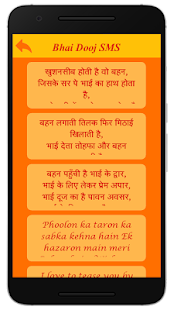 Bhai Dooj SMS
खुशनसीब होती है वो बहन,
जिसके सर पे भाई का हाथ होता
है,
बहन लगाती तिलक फिर मिठाई
खिलाती है,
भाई देता तोहफा और बहन
बहन पहुँची है भाई के द्वार,
भाई के लिए लेकर प्रेम अपार,
भाई दूज का है पावन अवसर,
Phoolon ka taron ka
sabka kehna hain Ek
hazaron main meri
I love to tease you by